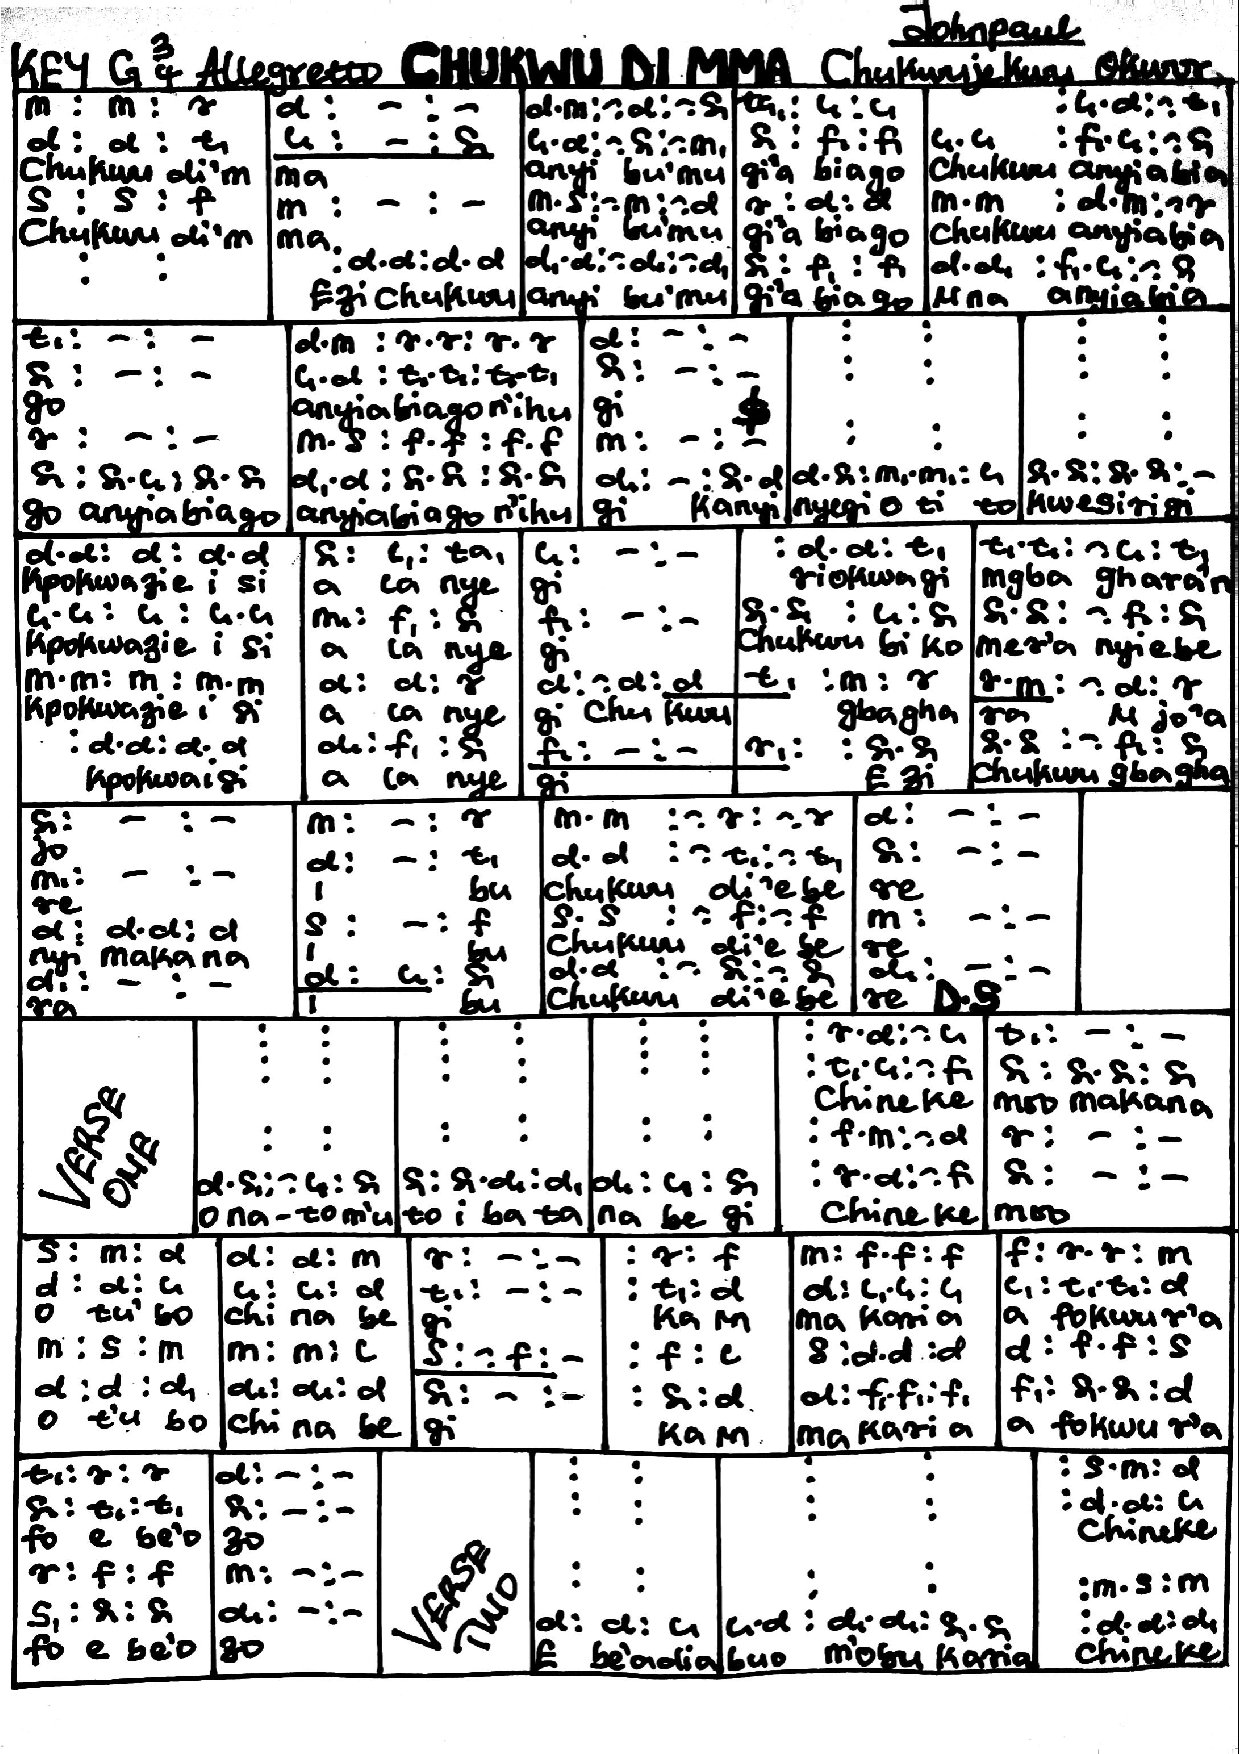 Johnpaul
KEY G 3/4 Allegretto CHUKWU DI MMA Chukwujekwu
m : m : r | d : - : - | d.m:-.d:-.s₁ | ta₁: l₁: l₁ | :l₁.d:-.t₁
d : d : t₁ | l₁: - : s₁ | l₁.d:-.s₁:-.m₁ | s₁: f₁: f₁ | l₁.l₁ : f₁.l₁:-.s₁
Chukwu di'm | ma | anyi bu'mu | gi'a biago | Chukwu anyiabia
s : s : f | m : - : - | m.s:-.m:-.d | r : d : d | m.m : d.m:-.r
Chukwu di'm | ma. | anyi bu'mu | gi'a biago | Chukwu anyiabia
: : | :d.d:d.d | d₁.d₁:-.d₁:-.d₁ | s₁: f₁ : f₁ | d.d₁ : f₁.l₁:-.s₁
Ezi Chukwu | anyi bu'mu | gi'a biago | Nna anyiabia
t₁: - : - | d.m : r.r : r.r | d : - : - | : : | : :
s₁ : - : - | l₁.d : t₁.t₁: t₁.t₁ | s₁: - : - | : : | : :
go | anyiabiago n'ihu | gi
r : - : - | m.s : f.f : f.f | m: - : - | : : | : :
s₁ : s₁.l₁ : s₁.s₁ | d₁.d₁ : s₁.s₁ : s₁.s₁ | d₁: - : s₁.d | d.s₁: m₁.m₁ : l₁ | s₁.s₁: s₁.s₁ : -
go anyiabiago | anyiabiago n'ihu | gi Kanyi | nyegi O ti to | kwesirigi
d.d: d : d.d | s₁: l₁: ta₁ | l₁: - : - | : d.d: t₁ | t₁.t₁: -.l₁: t₁
Kpokwazie i si | a ca nye | gi | riokwagi | mgba ghara'n
l₁.l₁: l₁ : l₁.l₁ | m₁: f₁: s₁ | f₁: - : - | s₁.s₁ : l₁: s₁ | s₁.s₁: -.f₁: s₁
Kpokwazie i si | a ca nye | gi | Chukwu bi ko | mer'a nyiebe
m.m: m : m.m | d: d: r | d:-.d: d | t₁ :m : r | r.m: -.d: r
Kpokwazie i si | a ca nye | gi Chu kwu | gbagha | ra N jo'a
: d.d: d.d | d₁: f₁ : s₁ | f₁: - : - | r₁: : s₁.s₁ | s₁.s₁ : -.f₁: s₁
kpokwaisi | a ca nye | gi | E zi | Chukwu gbagha
s₁: - : - | m: - : r | m.m : -.r : -.r | d: - : -
jo | d: - : t₁ | d.d : -.t₁: -.t₁ | s₁: - : -
m₁: - : - | I bu | Chukwu di'e be | re
re | s: - : f | s.s : -.f: -.f | m: - : -
d: d.d: d | I bu | Chukwu di'e be | re
nyi makana | d: l₁: s₁ | d.d : -.s₁: -.s₁ | d₁: - : -
d₁: - : - | I bu | Chukwu di'e be | re D.S
ra
VERSE ONE | : : | : : | : : | : r.d:-.l₁ | t₁: - : -
: : | : : | : : | : t₁.l₁:-.f₁ | s₁ : s₁.s₁: s₁
Chineke | moo makana
: : | : : | : : | : f.m:-.d | r: - : -
d.s₁:-.l₁: s₁ | s₁: s₁.d₁: d₁ | d₁: l₁: s₁ | : r.d:-.f₁ | s₁: - : -
O na-tom'u | to i ba ta | na be gi | Chineke | moo
s: m: d | d: d: m | r: - : - | : r: f | m: f.f: f | f: r.r: m
d : d: l₁ | l₁: l₁: d | t₁: - : - | : t₁: d | d: l₁.l₁: l₁ | l₁: t₁.t₁: d
O tu' bo | chi na be | gi | Ka m | ma karia | a fokwu r'a
m : s : m | m: m: | s:-.f: - | : f : | s :d.d :d | d : f.f : s
d : d : d₁ | d₁: d₁: d | s₁: - : - | : s₁: d | d: f₁.f₁: f₁ | f₁: s₁.s₁: d
O t'u bo | Chi na be | gi | Ka m | ma karia | a fokwu r'a
t₁: r: r | d: - : - | VERSE TWO | : : | : : | : s.m: d
s₁: t₁: t₁ | s₁: - : - | : : | : : | : d.d: l₁
fo e be'o | zo | Chineke
r: f: f | m: - : - | : : | : : | :m.s :m
s₁: s₁: s₁ | d₁: - : - | d: d: l₁ | l₁.d : d₁.d₁: s₁.s₁ | :d.d:d₁
fo e be'o | zo | E be'adia | buo m'obu karia | Chineke